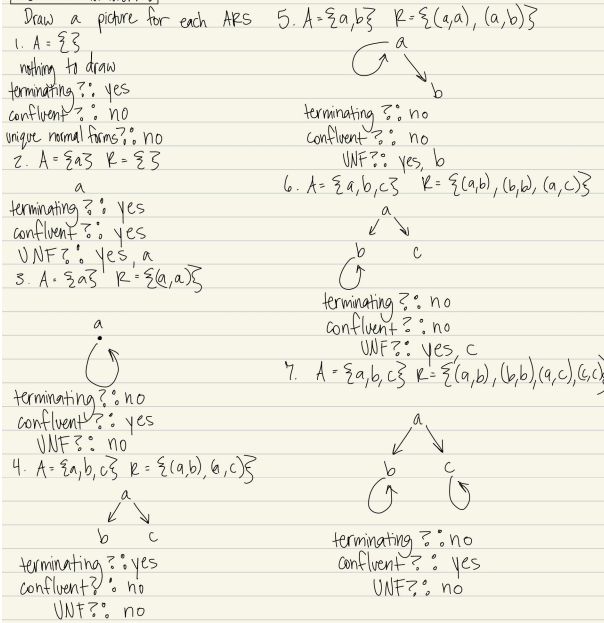 Draw a picture for each ARS
1. A = {}
nothing to draw
terminating?: yes
confluent?: no
unique normal forms?: no
2. A = {a} R = {}
a
terminating?: yes
confluent?: yes
UNF?: yes, a
3. A = {a} R = {(a,a)}
a
terminating?: no
confluent?: yes
UNF?: no
4. A = {a,b,c} R = {(a,b), (a,c)}
a
b c
terminating?: yes
confluent?: no
UNF?: no
5. A = {a,b} R = {(a,a), (a,b)}
a
b
terminating?: no
confluent?: no
UNF?: yes, b
6. A = {a,b,c} R = {(a,b), (b,b), (a,c)}
a
b c
terminating?: no
confluent?: no
UNF?: yes, c
7. A = {a,b,c} R = {(a,b), (b,b), (a,c), (c,c)}
a
b c
terminating?: no
confluent?: yes
UNF?: no